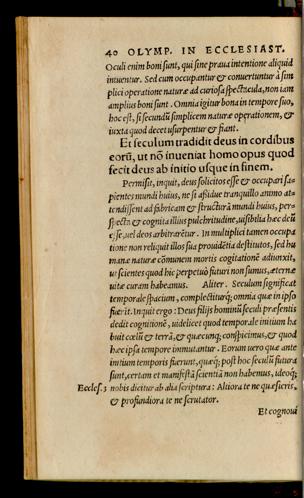 40 OLYMP. IN ECCLESIAST.
Oculi enim boni sunt, qui sine praua intentione aliquid
intuentur. Sed cum occupantur & conuertuntur à sim
plici operatione naturæ ad curiosa spectacula, non tam
amplius boni sunt. Omnia igitur bona in tempore suo,
hoc est, si secundũ simplicem naturæ operationem, &
iuxta quod decet usurpentur & fiant.
Et seculum tradidit deus in cordibus
eorũ, ut nõ inueniat homo opus quod
fecit deus ab initio usque in finem.
Permisit, inquit, deus solicitos esse & occupari sa-
pientes mundi huius, ne si assidue tranquillo animo at-
tendissent ad fabricam & structurã mundi huius, per-
specta & cognita illius pulchritudine, uisibilia hæc deũ
esse, uel deos arbitrarētur. In multiplici tamen occupa
tione non reliquit illos sua prouidētia destitutos, sed hu
manæ naturæ cõmunem mortis cogitationē adiunxit,
ut scientes quod hic perpetuò futuri non sumus, æternæ
uitæ curam habeamus. Aliter. Seculum significat
temporale spacium, complectiturq́; omnia quæ in ipso
fuerit. Inquit ergo: Deus filijs hominũ seculi præsentis
dedit cognitionē, uidelicet quod temporale initium ha
buit cœlũ & terrã, & quæcunq; conspicimus, & quod
hæc ipsa tempore immutantur. Eorum uero quæ ante
initium temporis fuerunt, quæq́; post hoc seculũ futura
sunt, certam et manifestã scientiã non habemus, ideoq́;
Eccles. 3 nobis dicitur ab alia scriptura: Altiora te ne quæsieris,
& profundiora te ne scrutator.
Et cognoui